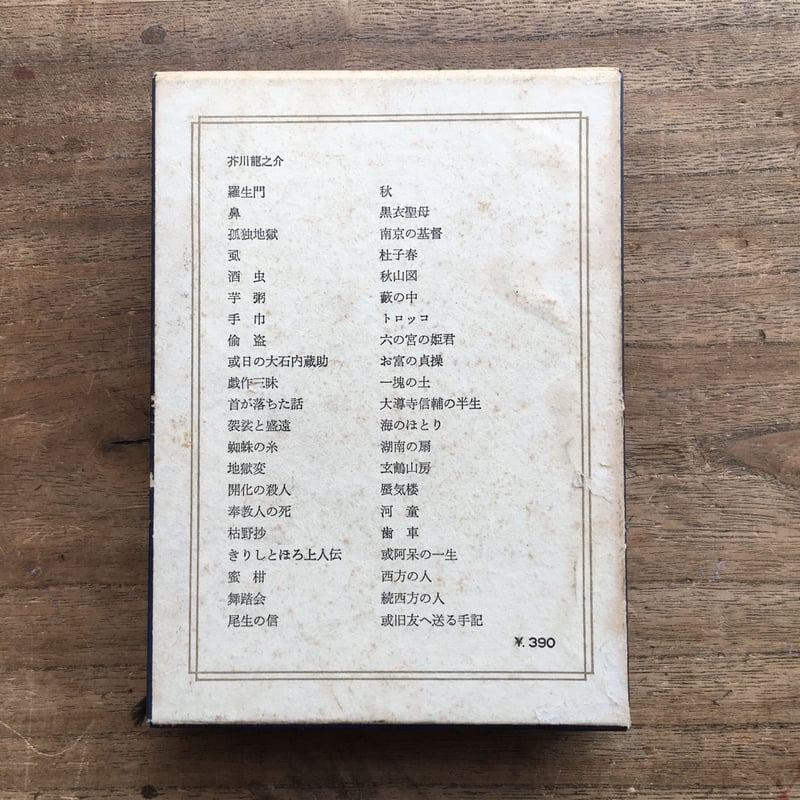 芥川龍之介
羅生門
鼻
孤独地獄
虱
酒　虫
芋　粥
手　巾
偸　盗
或日の大石内蔵助
戯作三昧
首が落ちた話
袈裟と盛遠
蜘蛛の糸
地獄変
開化の殺人
奉教人の死
枯野抄
きりしとほろ上人伝
蜜　柑
舞踏会
尾生の信
秋
黒衣聖母
南京の基督
杜子春
秋山図
藪の中
トロッコ
六の宮の姫君
お富の貞操
一塊の土
大導寺信輔の半生
海のほとり
湖南の扇
玄鶴山房
蜃気楼
河　童
歯　車
或阿呆の一生
西方の人
続西方の人
或旧友へ送る手記
¥. 390